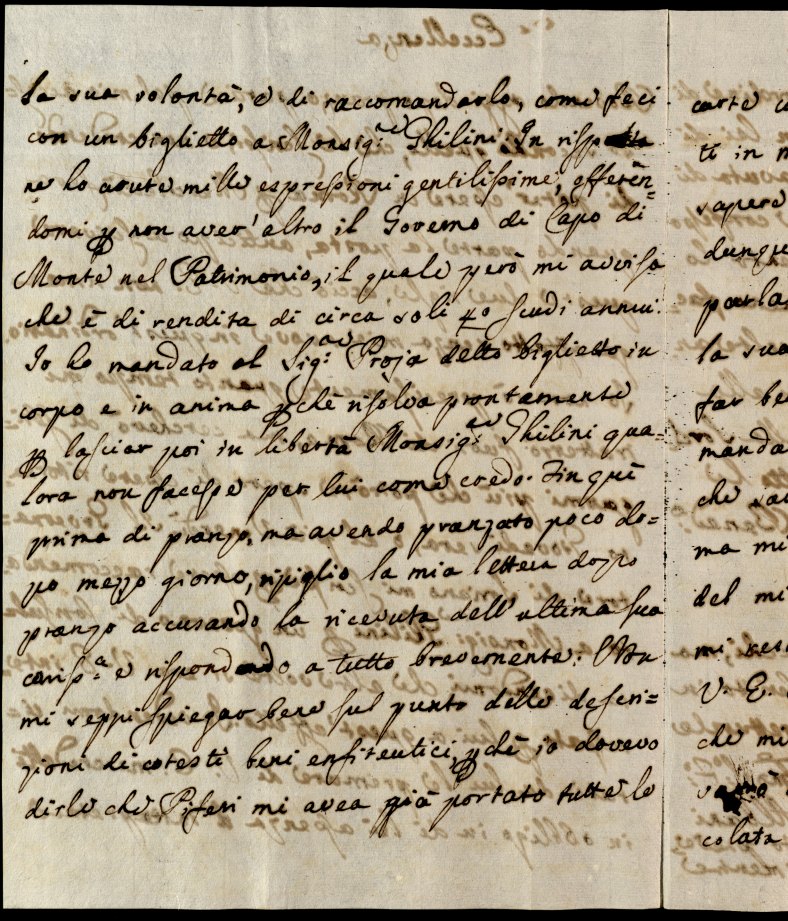 la sua volontà, e di raccomandarlo, come feci
con un biglietto a Monsig.re Ghilini. In risposta
ne ho avute mille espressioni gentilissime, offeren=
domi p non aver' altro il Governo di Capo di
Monte nel Patrimonio, il quale però mi avvisa
che è di rendita di circa soli 40 scudi annui.
Io ho mandato al Sig.re Proja detto biglietto in
corpo e in anima pchè risolva prontamente
p lasciar poi in libertà Monsig.re Ghilini qua=
lora non facesse per lui come credo. Fin quì
prima di pranzo, ma avendo pranzato poco do=
po mezzo giorno, ripiglio la mia lettera dopo
pranzo accusando la ricevuta dell'ultima sua
cariss.a e rispondendo a tutto brevemente. Non
mi seppi spiegar bene sul punto delle descri=
zioni di cotesti beni enfiteutici, pchè io dovevo
dirle che Piferi mi avea già portato tutte le
carte
ti in
sapere
dunque
parla
la sua
far be
manda
che sar
ma mi
del mi
mi res
V. E.
che mi
colata